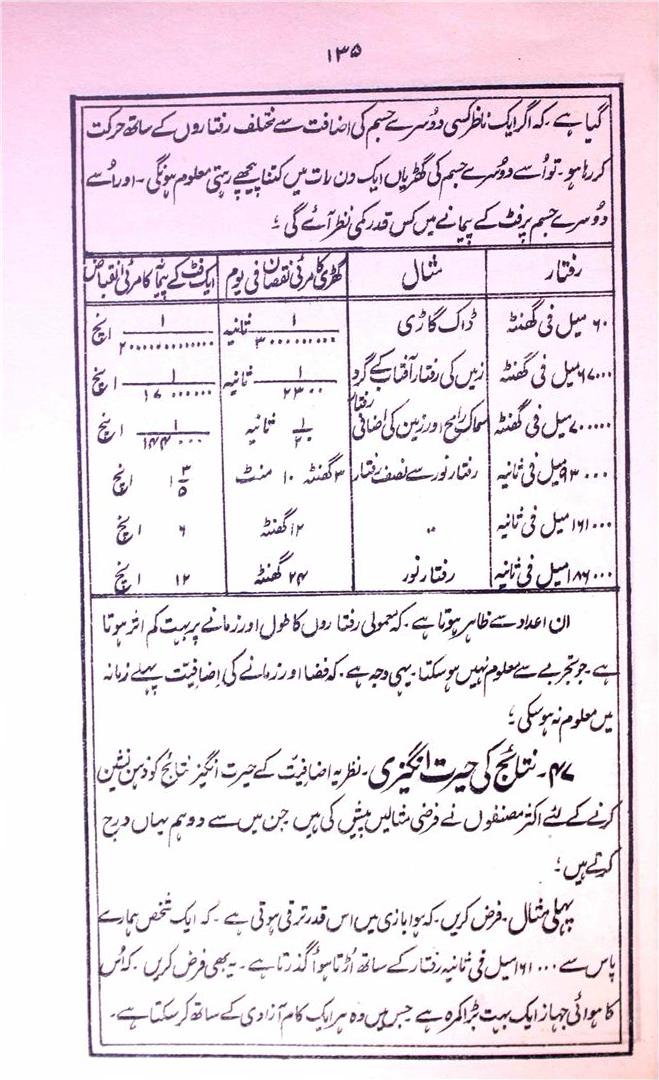 ۱۳۵
گیا ہے ۔ کہ اگر ایک ناظر کسی دوسرے جسم کی اضافت سے مختلف رفتاروں کے ساتھ حرکت
کر رہا ہو ۔ تو اُسے دوسرے جسم کی گھڑیاں ایک دن رات میں کتنا پیچھے رہتی معلوم ہونگی ۔ اور اُسے
دوسرے جسم پر فٹ کے پیمانے میں کس قدر کمی نظر آئے گی ؛
رفتار | مثال | گھڑی کا مرئی نقصان فی یوم | ایک فٹ کے پیمانہ کا مرئی انقباض
۶۰ میل فی گھنٹہ | ڈاک گاڑی | ۱/۳۰۰۰۰۰۰۰۰۰ ثانیہ | ۱/۲۰۰۰۰۰۰۰۰۰۰۰۰۰ انچ
۶۷۰۰۰ میل فی گھنٹہ | زمین کی رفتار آفتاب کے گرد | ۱/۲۳۰۰ ثانیہ | ۱/۱۷۰۰۰۰۰۰ انچ
۷۰۰۰۰۰ میل فی گھنٹہ | سماک رامح اور زمین کی اضافی رفتار | ۱/۲۰ ثانیہ | ۱/۱۴۴۰۰۰۰ انچ
۹۳۰۰۰ میل فی ثانیہ | رفتار نور سے نصف رفتار | ۳ گھنٹہ ۱۰ منٹ | ۱ ۳/۵ انچ
۱۶۱۰۰۰ میل فی ثانیہ | ،، | ۱۲ گھنٹہ | ۶ انچ
۱۸۶۰۰۰ میل فی ثانیہ | رفتار نور | ۲۴ گھنٹہ | ۱۲ انچ
ان اعداد سے ظاہر ہوتا ہے ۔ کہ معمولی رفتاروں کا طول اور زمانے پر بہت کم اثر ہوتا
ہے ۔ جو تجربے سے معلوم نہیں ہو سکتا ۔ یہی وجہ ہے ۔ کہ فضا اور زمانے کی اضافیت پہلے زمانہ
میں معلوم نہ ہو سکی ؛
۴۷ ۔ نتائج کی حیرت انگیزی ۔ نظریہ اضافیت کے حیرت انگیز نتائج کو ذہن نشین
کرنے کے لئے اکثر مصنفوں نے فرضی مثالیں پیش کی ہیں جن میں سے دو ہم یہاں درج
کرتے ہیں ؛
پہلی مثال ۔ فرض کریں ۔ کہ ہوا بازی میں اس قدر ترقی ہوتی ہے ۔ کہ ایک شخص ہمارے
پاس سے ۱۶۱۰۰۰ میل فی ثانیہ رفتار کے ساتھ اُڑتا ہوا گذرتا ہے ۔ یہ بھی فرض کریں ۔ کہ اُس
کا ہوائی جہاز ایک بہت بڑا کمرہ ہے جس میں وہ ہر ایک کام آزادی کے ساتھ کر سکتا ہے ۔